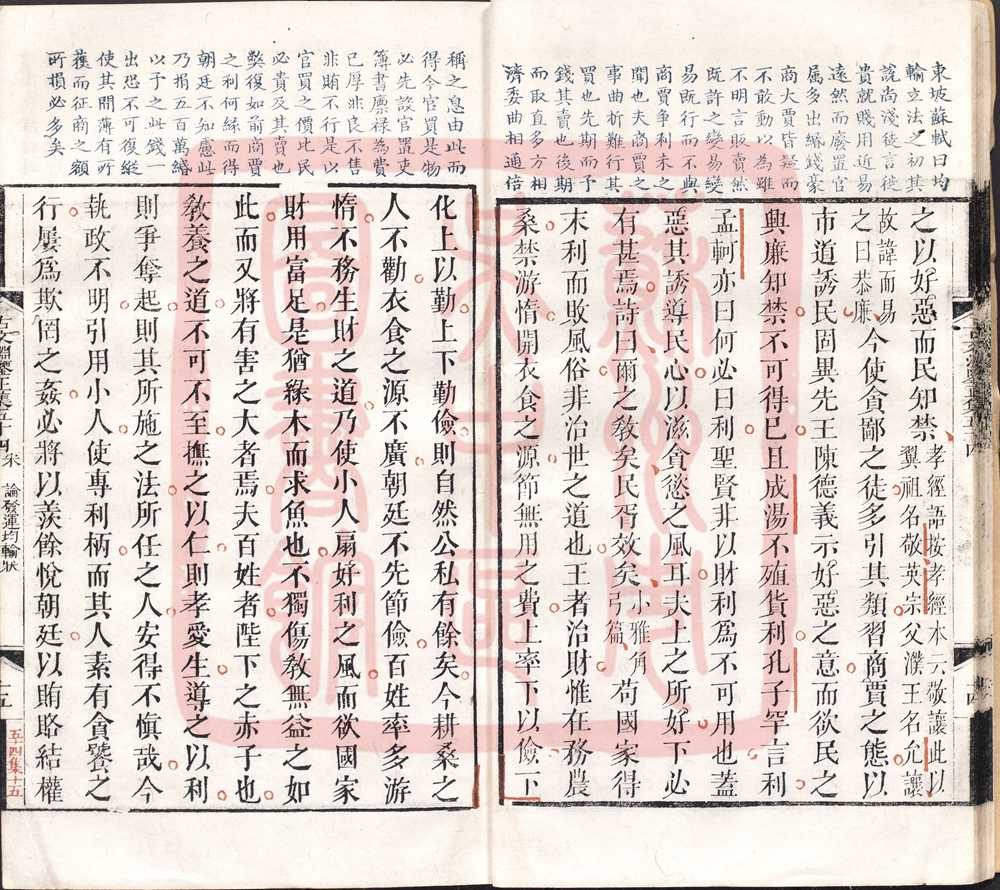 東坡蘇軾曰均
輸立法之初其
說尚淺徒言徙
貴就賤用近易
遠然而廢置官
属多出緡錢豪
商大賈皆疑而
不敢動以為雖
不明言販賣然
既許之變易變
易既行而不與
商賈爭利未之
聞也夫商賈之
事曲折難行其
買也先期而予
錢其賣也後期
而取直多方相
濟委曲相通倍
之以好惡而民知禁孝經語按孝經本云敬讓此以翼祖名敬英宗父濮王名允讓
故諱而易之曰恭廉今使貪鄙之徒多引其類習商賈之態以
市道誘民固異先王陳德義示好惡之意而欲民之
興廉知禁不可得已且成湯不殖貨利孔子罕言利
孟軻亦曰何必曰利聖賢非以財利爲不可用也蓋
惡其誘導民心以滋貪慾之風耳夫上之所好下必
有甚焉詩曰爾之教矣民胥效矣小雅角弓篇苟國家得
末利而敗風俗非治世之道也王者治財惟在務農
桑禁游惰開衣食之源節無用之費上率下以儉下
稱之息由此而
得今官買是物
必先設官置吏
簿書廩祿為費
已厚非良不售
非賄不行是以
官買之價比民
必貴及其賣也
弊復如前商賈
之利何緣而得
朝廷不知慮此
乃捐五百萬緡
以予之此錢一
出恐不可復縱
使其間薄有所
獲而征商之額
所損必多矣
化上以勤上下勤儉則自然公私有餘矣今耕桑之
人不勸衣食之源不廣朝廷不先節儉百姓率多游
惰不務生財之道乃使小人扇好利之風而欲國家
財用富足是猶緣木而求魚也不獨傷敎無益之如
此而又將有害之大者焉夫百姓者陛下之赤子也
敎養之道不可不至撫之以仁則孝愛生導之以利
則爭奪起則其所施之法所任之人安得不愼哉今
執政不明引用小人使專利柄而其人素有貪饕之
行屢爲欺罔之姦必將以羨餘悅朝廷以賄賂結權
古文淵鑒正集五十四 宋 論發運均輸狀
十五
五十四集十五